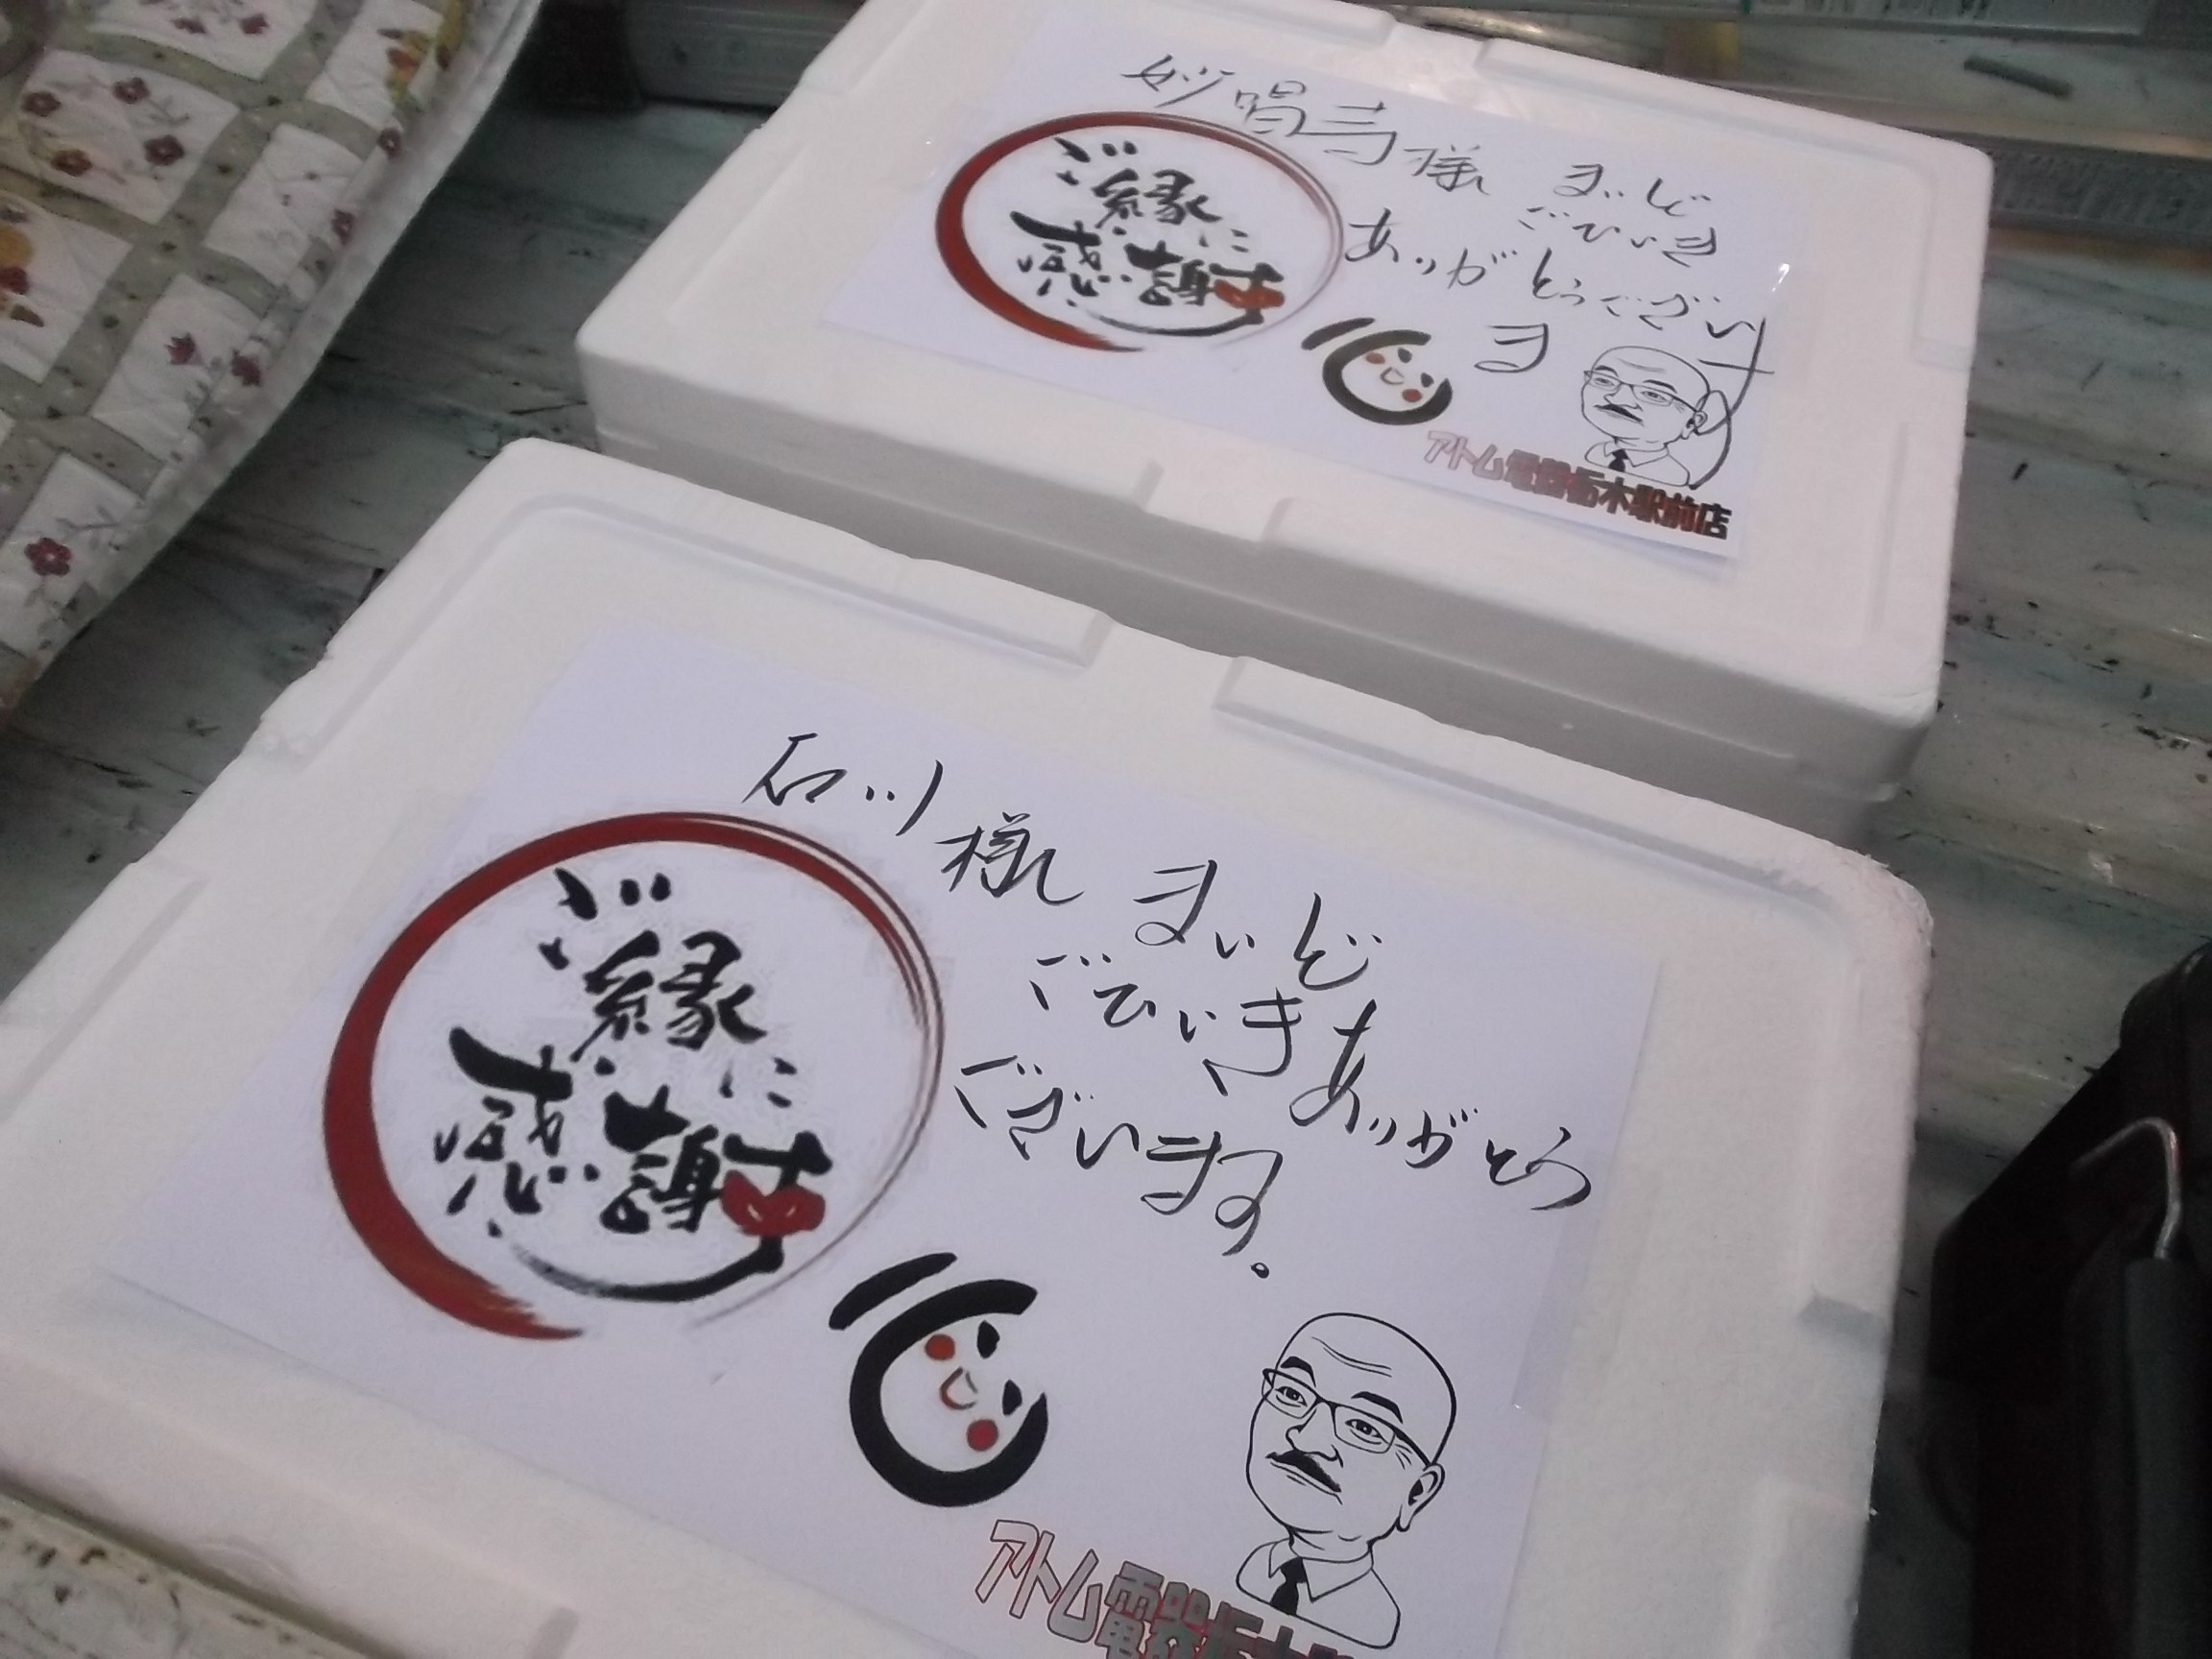 妙唱寺様 まいど
ごひいき
ありがとうござい
ます
ご縁に
感謝
心
アトム電器栃木駅前店
石川様 まいど
ごひいきありがとう
ございます。
ご縁に
感謝
心
アトム電器栃木駅